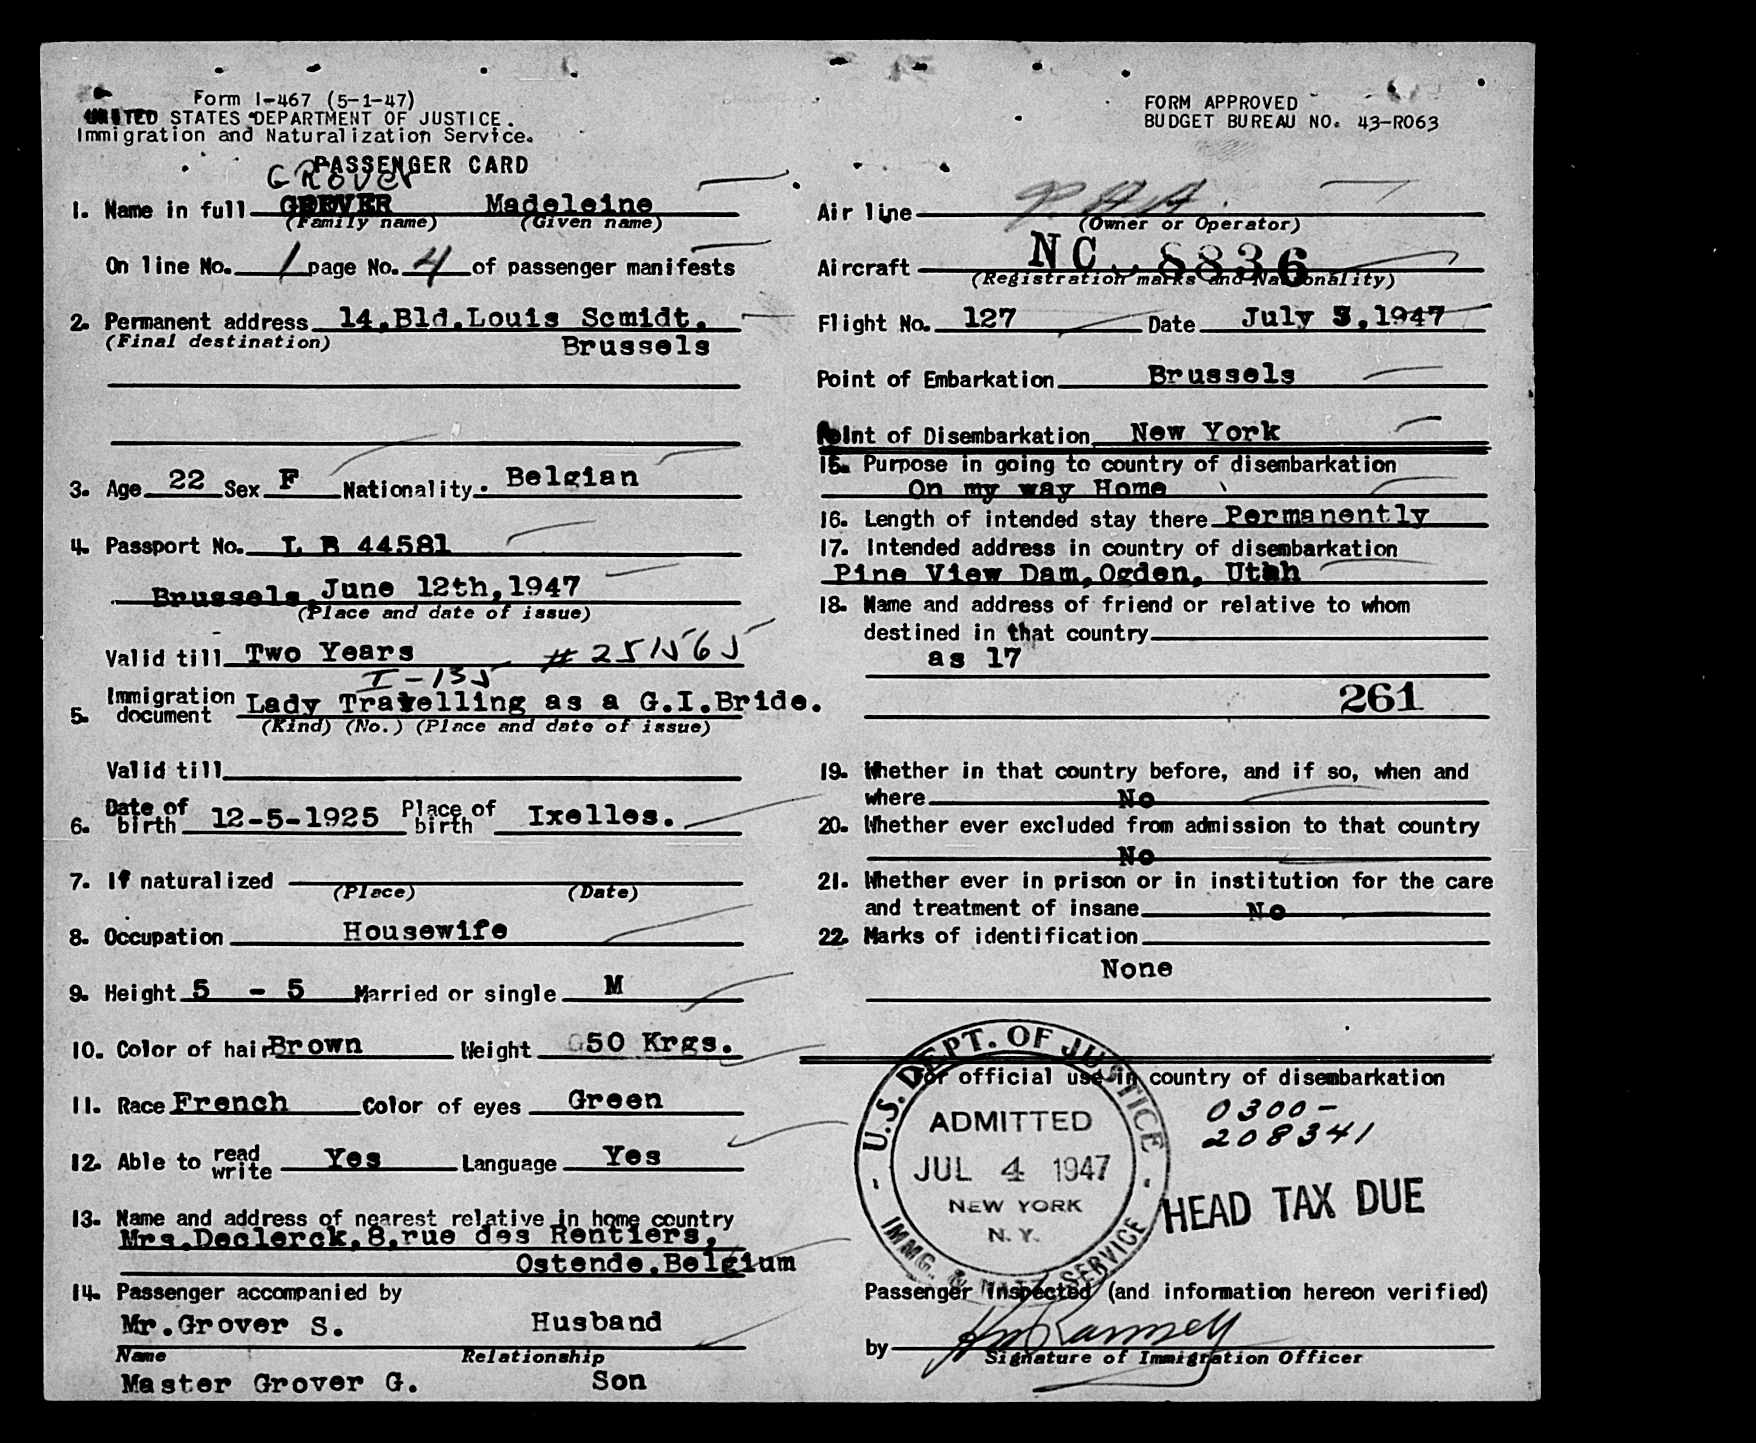 Form I-467 (5-1-47)
UNITED STATES DEPARTMENT OF JUSTICE.
Immigration and Naturalization Service.
PASSENGER CARD
GROVER
1. Name in full GREVER Madeleine
(Family name) (Given name)
On line No. 1 page No. 4 of passenger manifests
2. Permanent address 14,Bld.Louis Scmidt.
(Final destination) Brussels
3. Age 22 Sex F Nationality. Belgian
4. Passport No. L B 44581
Brussels, June 12th,1947
(Place and date of issue)
Valid till Two Years # 251565
I-135
5. Immigration document Lady Travelling as a G.I.Bride.
(Kind) (No.) (Place and date of issue)
Valid till
6. Date of birth 12-5-1925 Place of birth Ixelles.
7. If naturalized
(Place) (Date)
8. Occupation Housewife
9. Height 5 - 5 Married or single M
10. Color of hair Brown Weight 50 Krgs.
11. Race French Color of eyes Green
12. Able to read write Yes Language Yes
13. Name and address of nearest relative in home country
Mrs.Declerck,8,rue des Rentiers,
Ostende.Belgium
14. Passenger accompanied by
Mr.Grover S. Husband
Name Relationship
Master Grover G. Son
FORM APPROVED
BUDGET BUREAU NO. 43-R063
Air line
(Owner or Operator)
Aircraft NC 8836
(Registration marks and Nationality)
Flight No. 127 Date July 3,1947
Point of Embarkation Brussels
Point of Disembarkation New York
15. Purpose in going to country of disembarkation
On my way Home
16. Length of intended stay there Permanently
17. Intended address in country of disembarkation
Pine View Dam,Ogden, Utah
18. Name and address of friend or relative to whom
destined in that country
as 17
261
19. Whether in that country before, and if so, when and
where No
20. Whether ever excluded from admission to that country
No
21. Whether ever in prison or in institution for the care
and treatment of insane No
22. Marks of identification
None
For official use in country of disembarkation
U.S. DEPT. OF JUSTICE
ADMITTED
JUL 4 1947
NEW YORK
N.Y.
IMMG. & NATZ. SERVICE
0300-
208341
HEAD TAX DUE
Passenger Inspected (and information hereon verified)
by
Signature of Immigration Officer